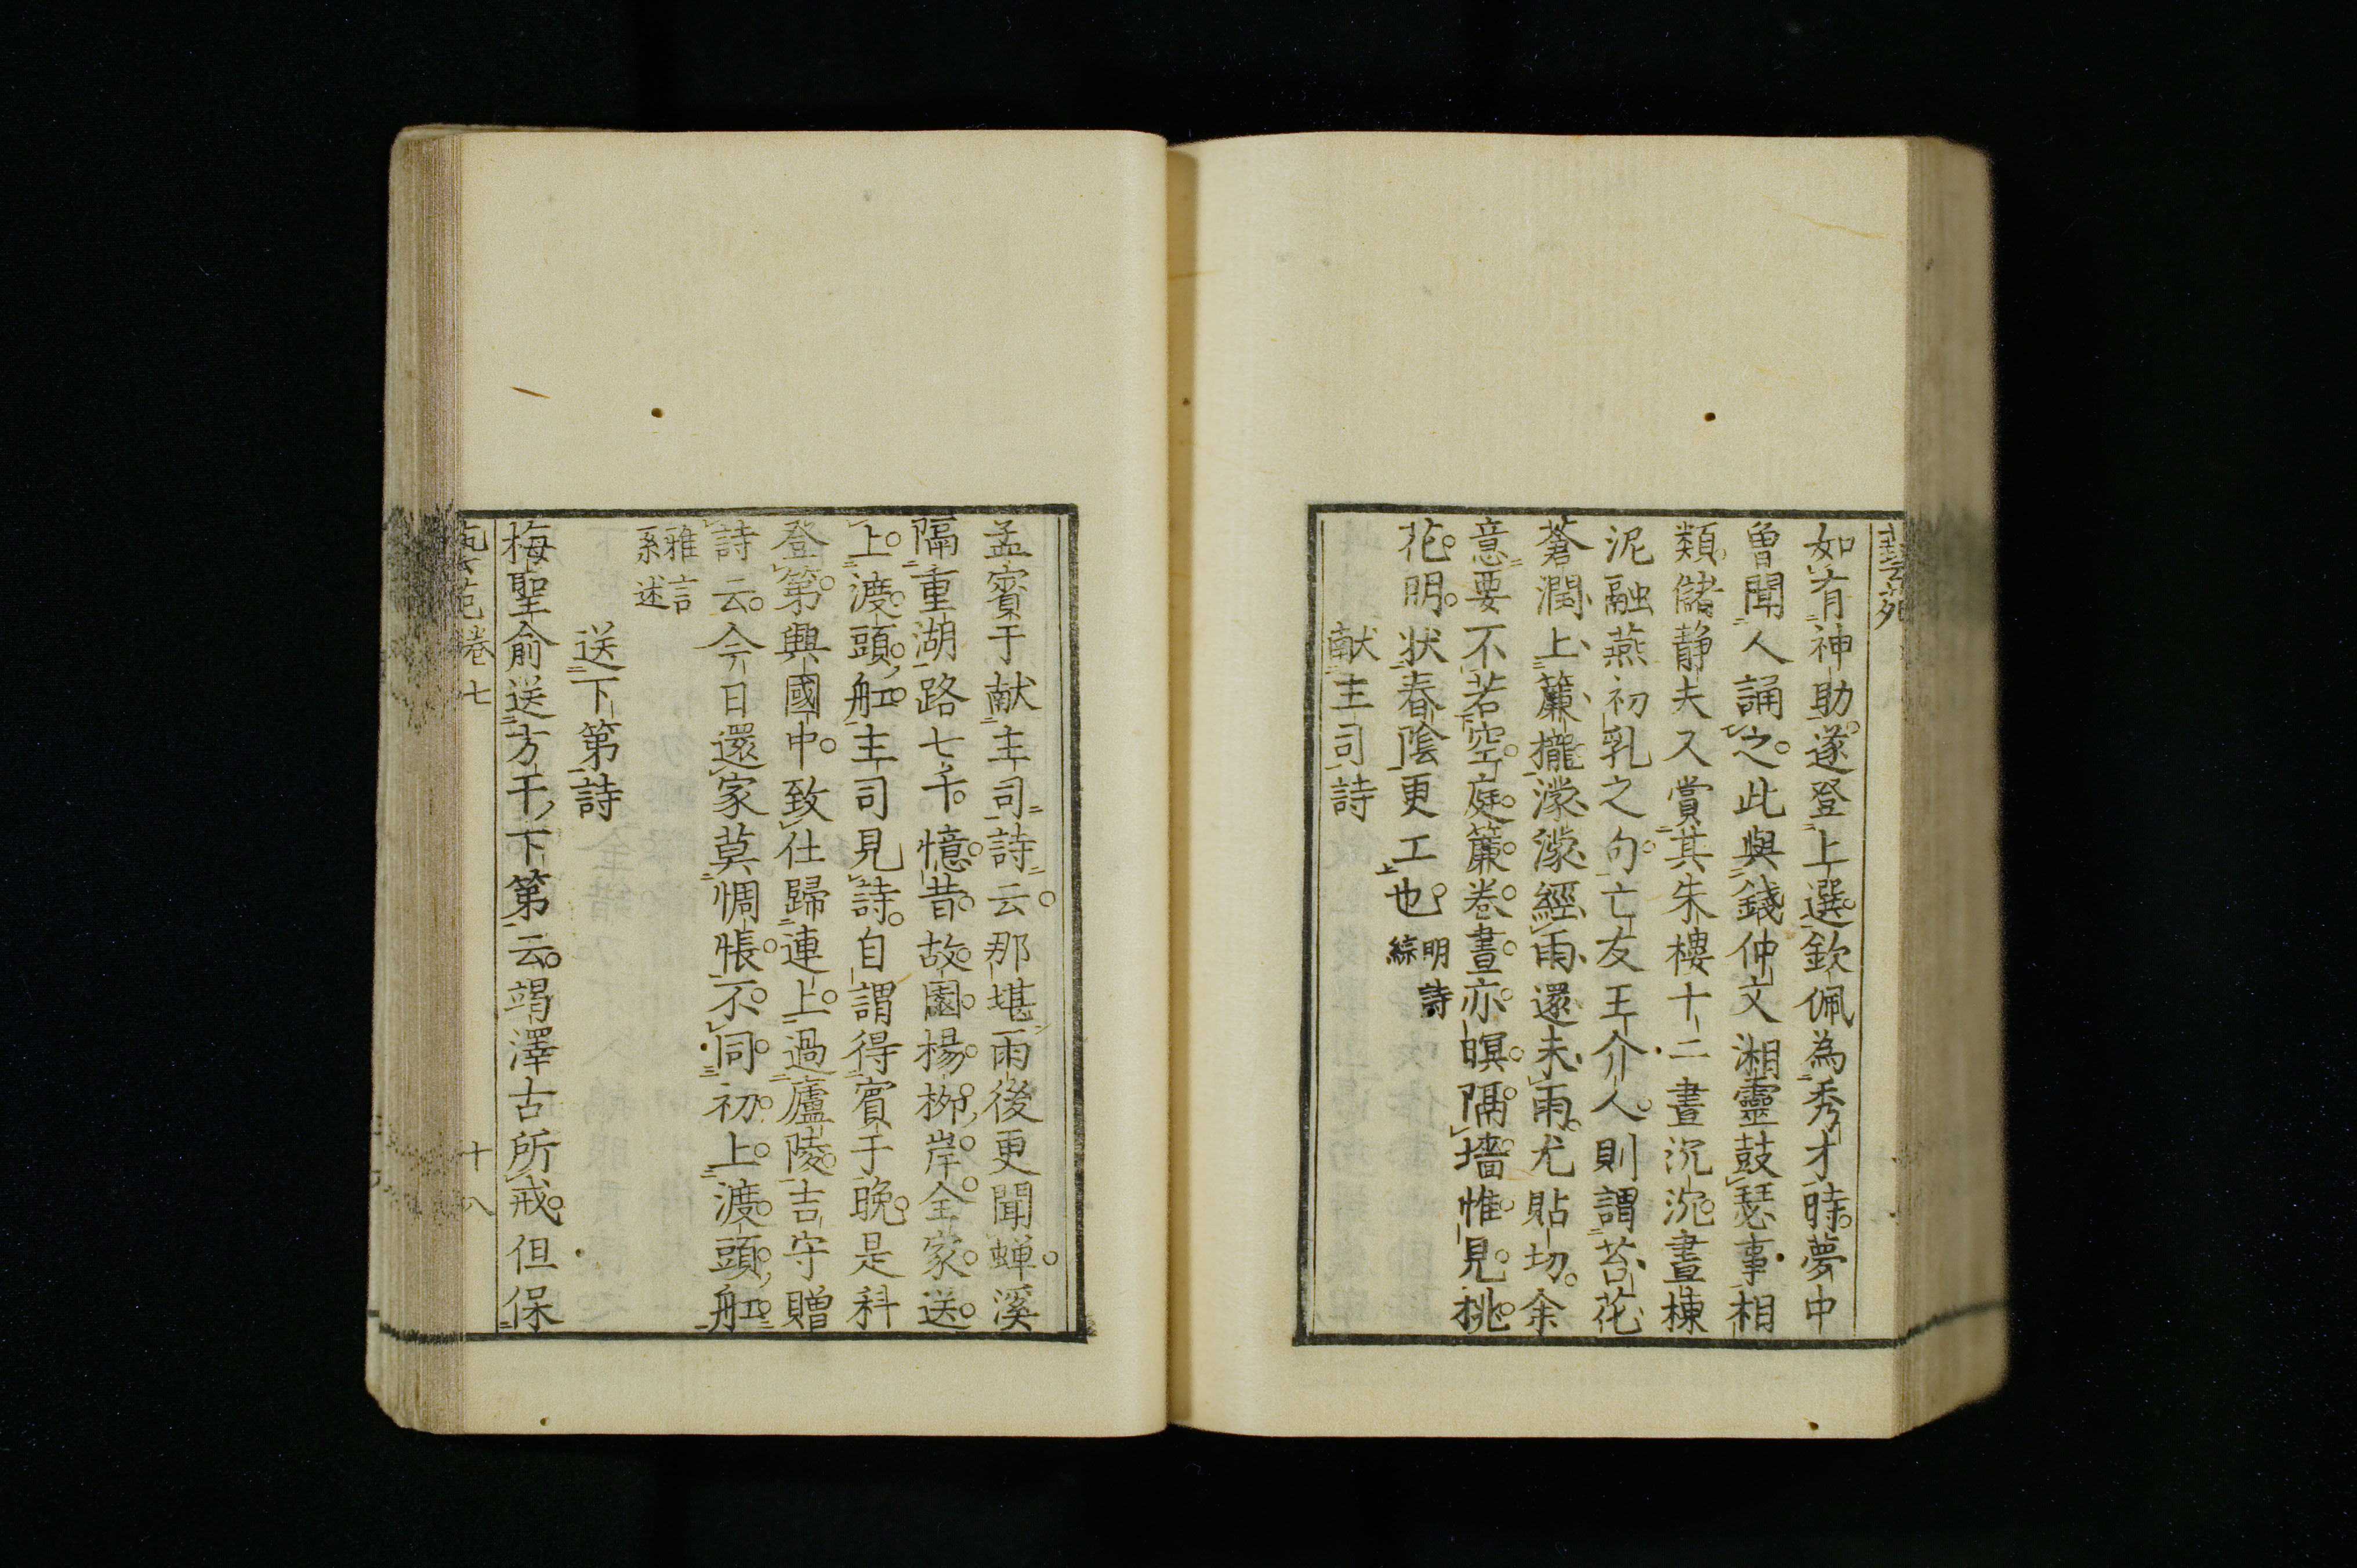 如有神助遂登上選欽佩為秀才時夢中
曽聞人誦之此與錢仲文湘靈鼓瑟事相
類儲静夫又賞其朱樓十二晝沉沉畫棟
泥融燕初乳之句亡友王介人則謂苔花
蒼潤上簾櫳濛濛經雨還未雨尤貼切余
意要不若空庭簾卷晝亦暝隔墻惟見桃
花明状春陰更工也 明詩
綜
献主司詩
孟賓于献主司詩云那堪雨後更聞蝉溪
隔重湖路七千憶昔故園楊栁岸全家送
上渡頭舩主司見詩自謂得賓于晩是科
登第興國中致仕歸連上過廬陵吉守贈
詩云今日還家莫惆悵不同初上渡頭舩
雅言
系述
送下第詩
梅聖俞送方干下第云竭澤古所戒但保
藝苑巻七 十八